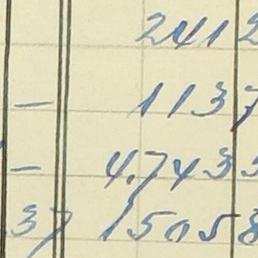 2412
— 1137
— 4.7433
37 15058